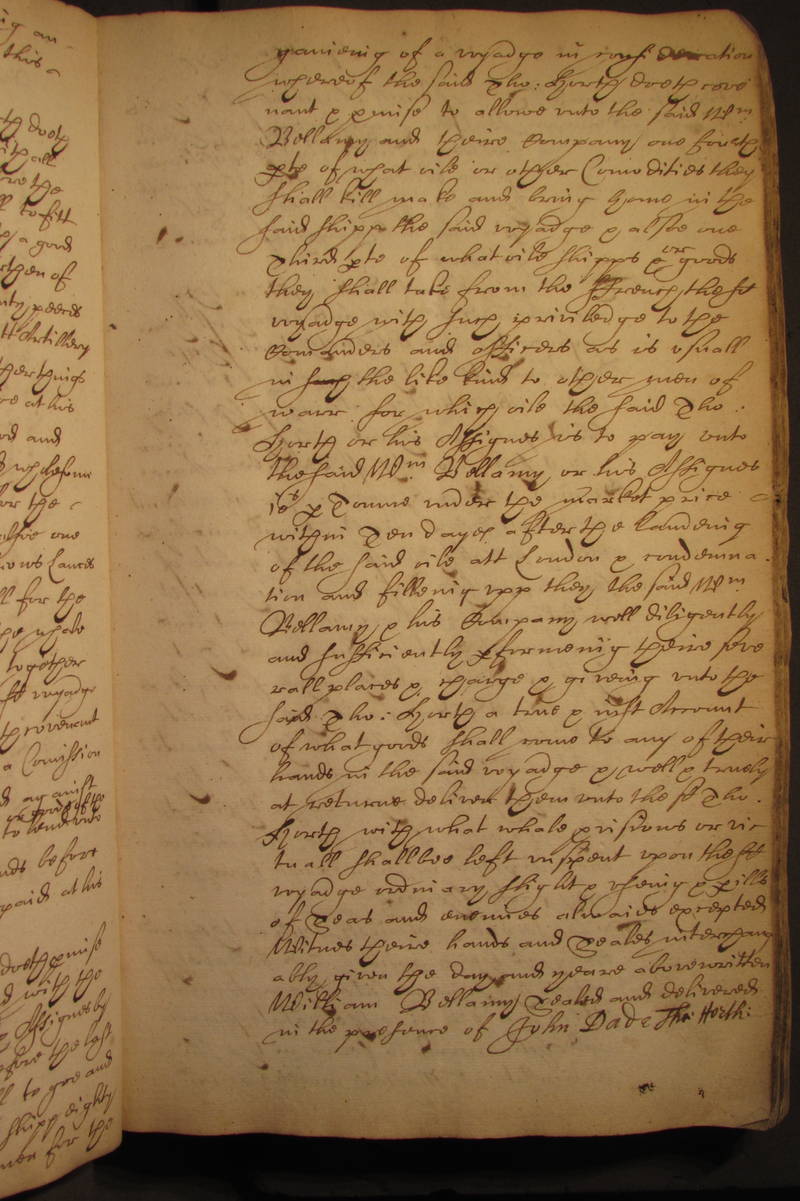 ig an
this
th doeth
ith all
re the
ll to fitt
a good
rthen of
nty peeces
tt Artillery
ther things
re at his
od and
d wholesome
or the
alsoe one
Lances
ll for the
the whole
together
sd voyadge
th covenant
a Comission
d against
to lend unto
nds before
paid at his
doeth pmise
d with the
Assignes by
efore the last
ll to goe and
shipp eighty
men for the
of a voyadge in consideration
whereof the said Tho: Horth doeth cove
nant & pmise to allowe vnto the said Wm
Bellamy and theire Company one fourth
pte of what oile or other Comodities they
shall kill make and bring home in the
said shipp the said voyadge & alsoe one
Third pte of what oile shipps & or goods
they shall take from the Ffrench the sd
voyadge with such priviledge to the
Comanders and officers as is vsuall
in such the like kind to other men of
warr for which oile the said Tho:
Horth or his Assignes is to pay vnto
the said Wm Bellamy or his Assignes
p Tonne vnder the market price
within Ten dayes after the Landeing
of the said oile att London & condemna
tion and filleing vpp they the said Wm
Bellamy & his Company well diligently
and sufficiently pformeing theire seve
rall places & charge & giveing vnto the
said Tho: Horth a true & iust Account
of what goods shall come to any of their
hands in the said voyadge & well & truely
at returne deliver them vnto the sd Tho:
Horth with what whole pvisions or vic
tuall shall bee left vnspent vpon the sd
voyadge ordinary slight & vseing & pills
of Seas and enemies alwaies excepted
Witnes theire hands and Seales interchang
ably given the day and yeare abovewritten
William Bellamy Sealed and delivered
in the presence of John Dade Tho: Horth: